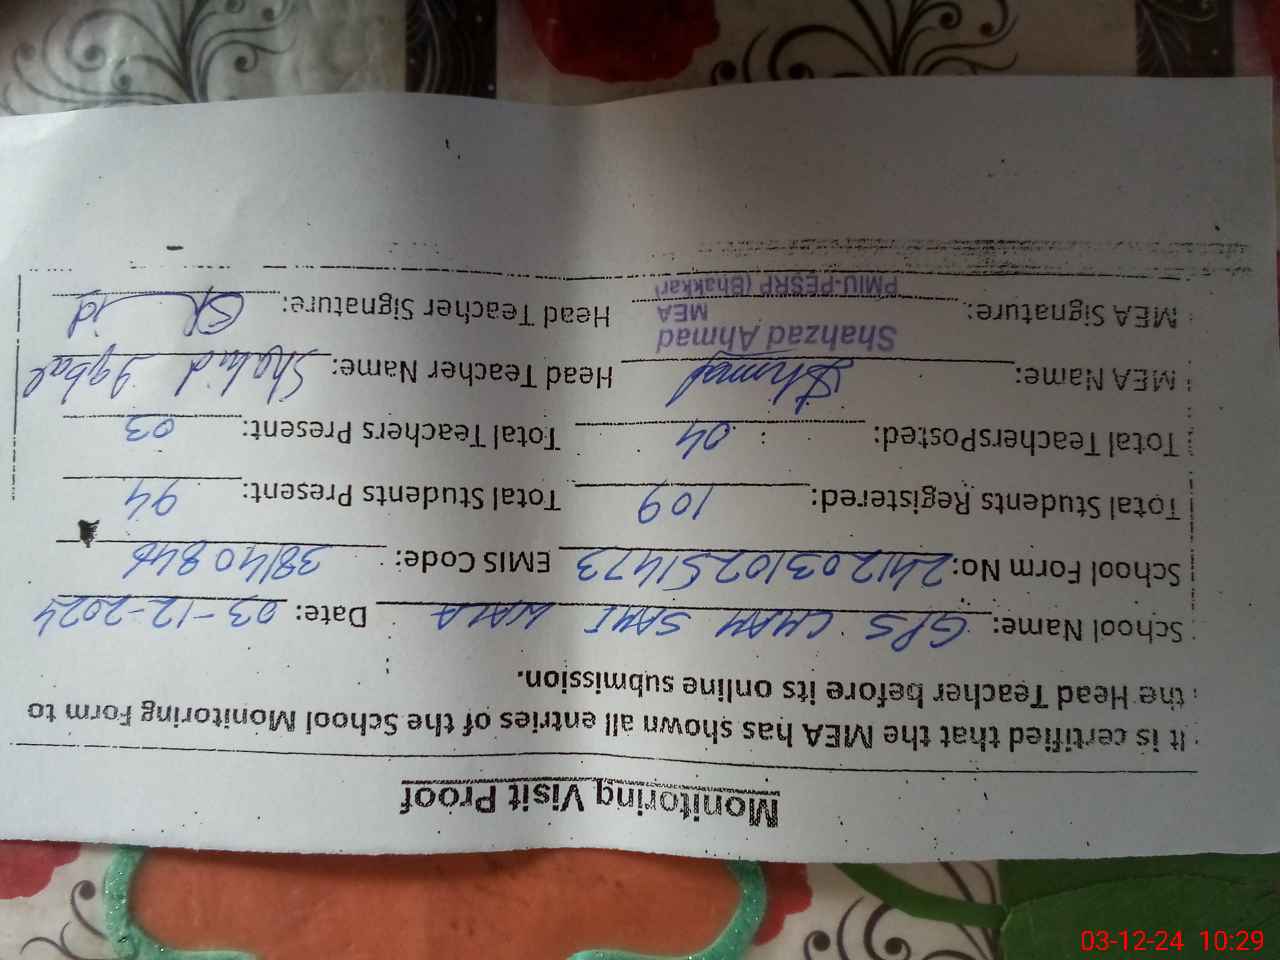 Monitoring Visit Proof
It is certified that the MEA has shown all entries of the School Monitoring Form to
the Head Teacher before its online submission.
School Name: GPS CHAH SAMI WALA Date: 03-12-2024
School Form No: 24120310251473 EMIS Code: 38140846
Total Students Registered: 109 Total Students Present: 94
Total TeachersPosted: 04 Total Teachers Present: 03
MEA Name: Head Teacher Name: Shahid Iqbal
Shahzad Ahmad
MEA Signature: MEA Head Teacher Signature:
PMIU-PESRP (Bhakkar)
03-12-24 10:29